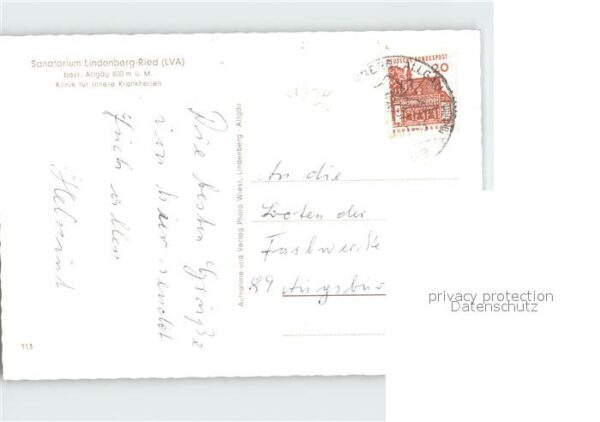 Sanatorium Lindenberg-Ried (LVA)
bayr. Allgäu 800 m ü. M.
Klinik für innere Krankheiten
Die besten Grüße
von hier sendet
Euch allen
Helmut
Aufnahme und Verlag Photo Wiest, Lindenberg - Allgäu
DEUTSCHE BUNDESPOST
20
An die
Boten der
Farbwerke
89 Augsbur
113
privacy protection
Datenschutz